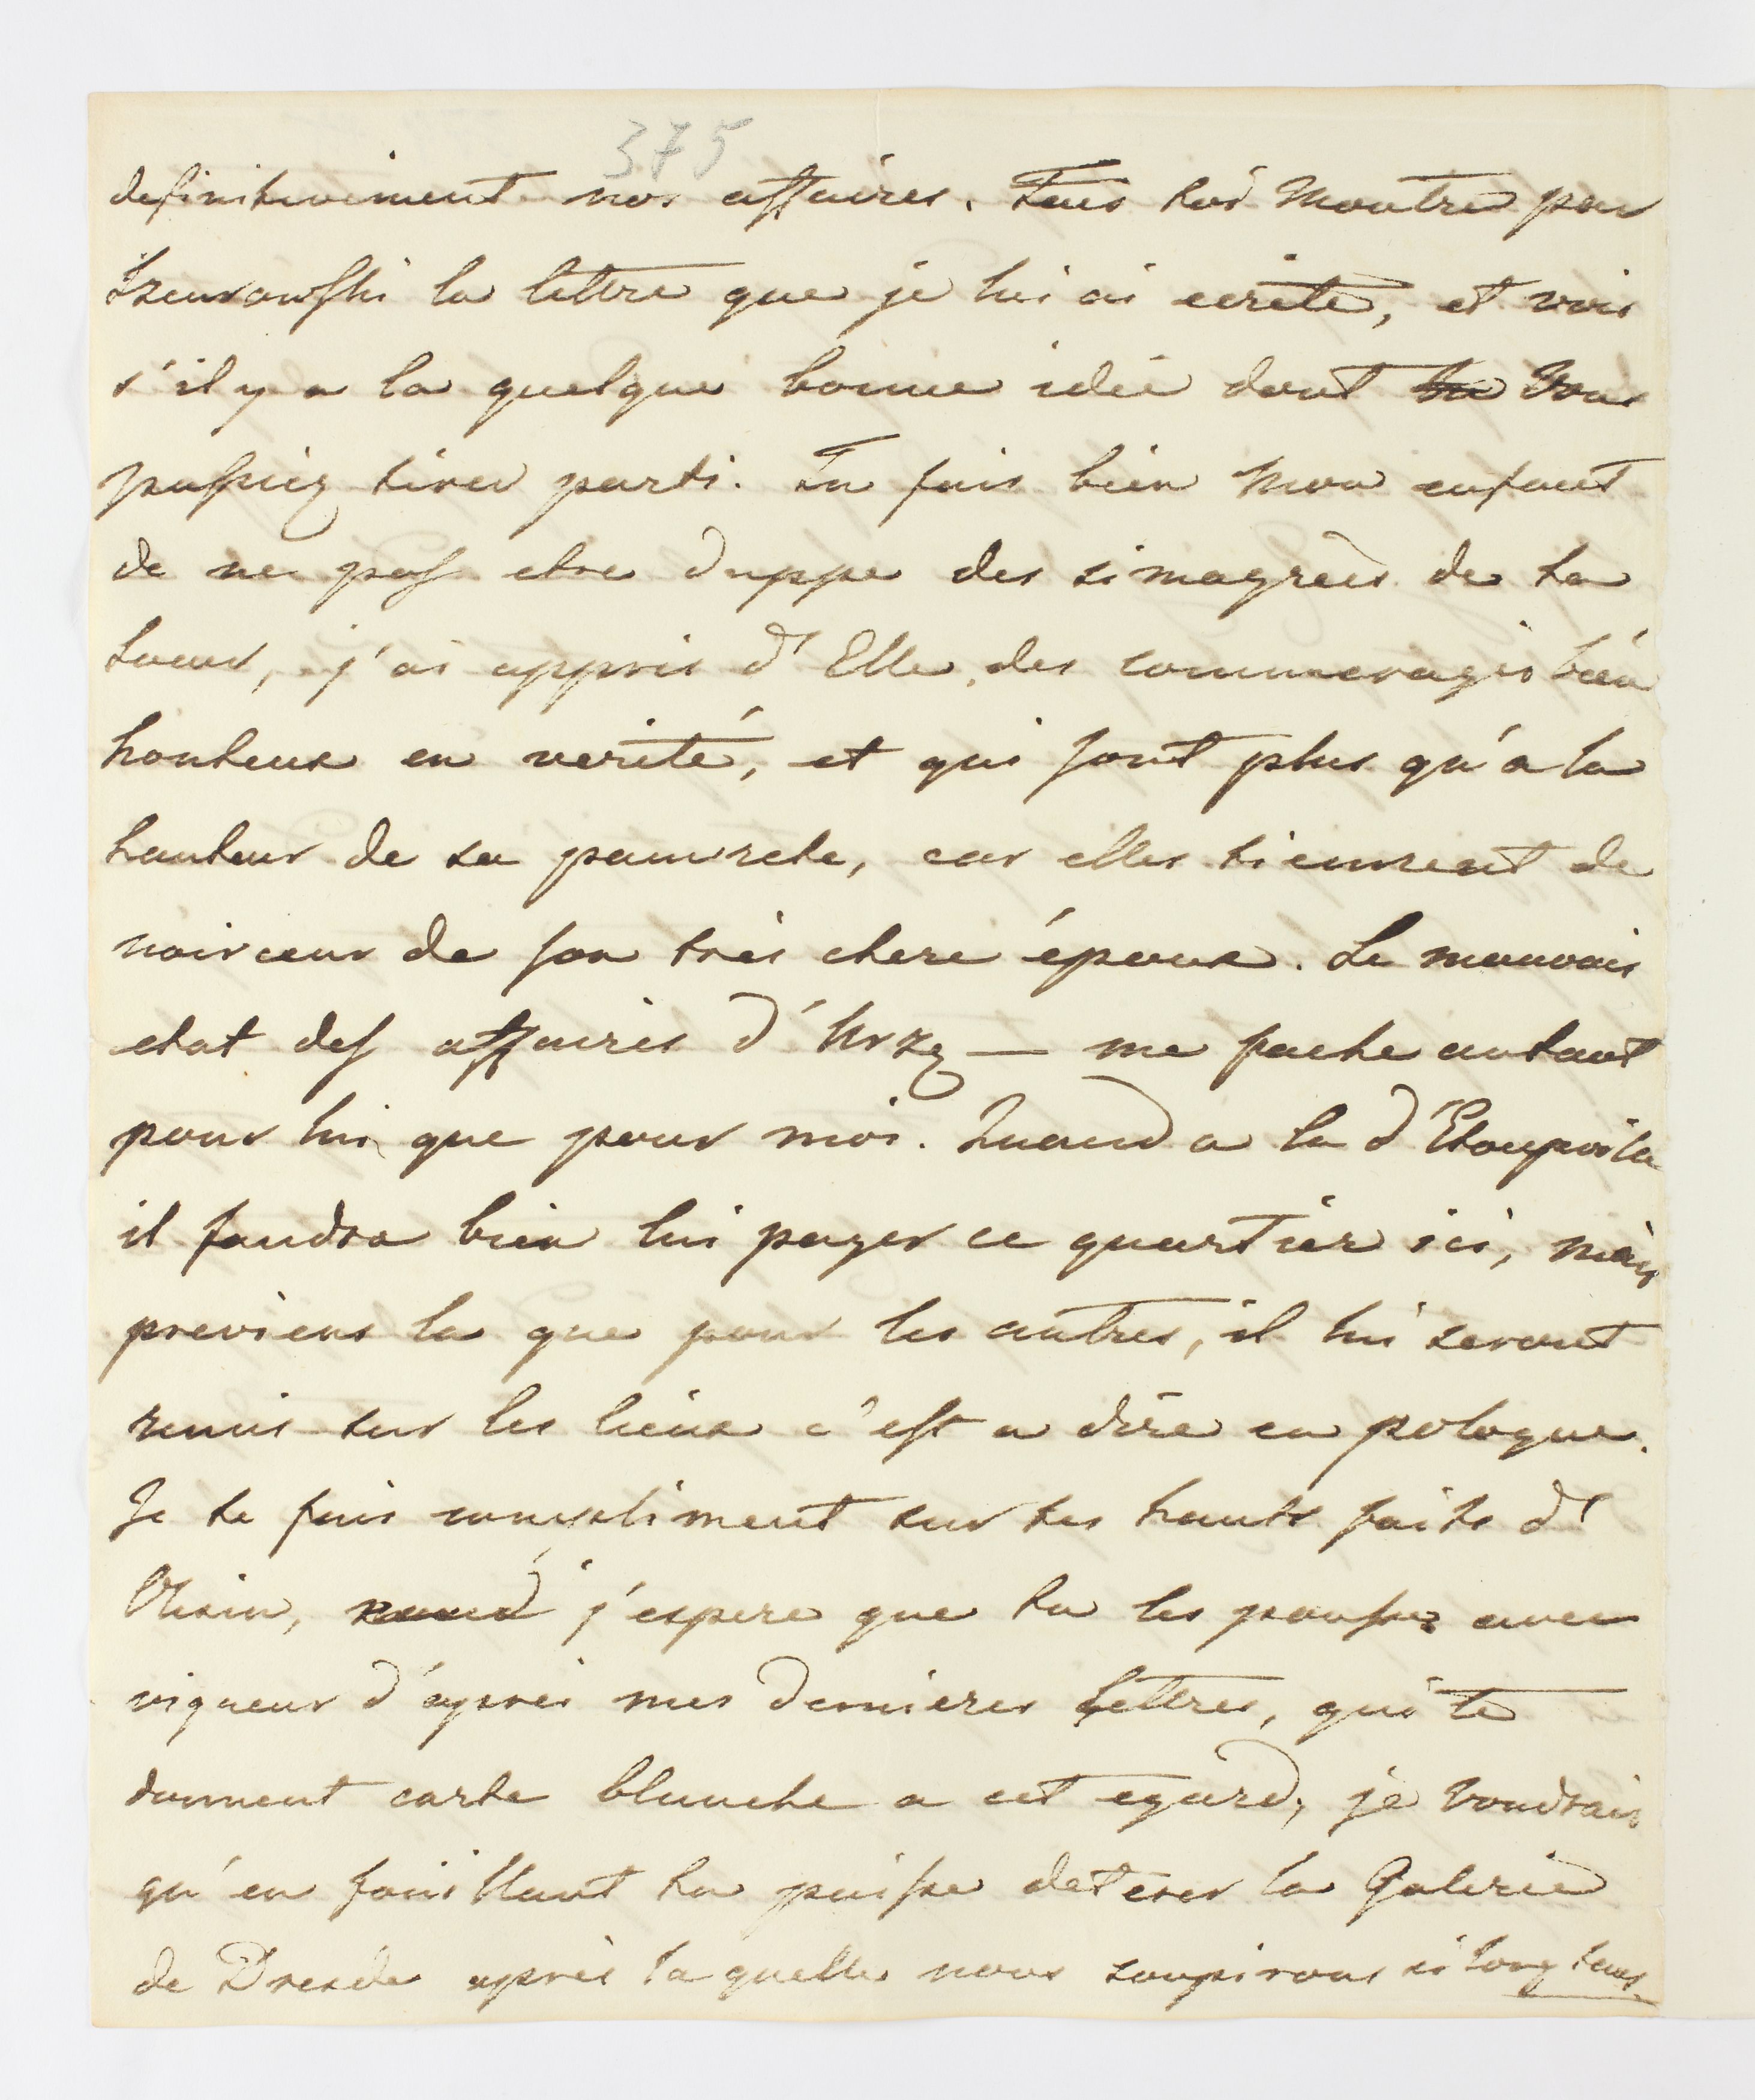 375
definitivement nos affaires. Fais toi montrer par
la lettre que je lui ai ecrite, et vois
s'il y a la quelque bonne idée dont tu Vous
pussiez tirer parti. Tu fais bien mon enfant
de ne pas etre duppe des simagrées de ta
soeur, j'ai appris d'Elle des commerages bien
honteux en verité, et qui sont plus qu'a la
hauteur de sa pauvrete, car elles tiennent de
noirceur de son très chere époux. Le mauvais
etat des affaires d' — me fache autant
pour lui que pour moi. Quand a la
il faudra bien lui payer ce quartier ici, mais
previens la que pour les autres, il lui seront
remis sur les lieux c'est a dire en pologne.
Je te fais compliment sur tes hauts faits d'
j'espere que tu les pousses avec
vigueur d'après mes dernieres lettres, qui te
donnent carte blanche a cet egard, je voudrais
qu'en fouillant tu puisse deterer la Galerie
de Dresde après laquelle nous soupirons si long tems.